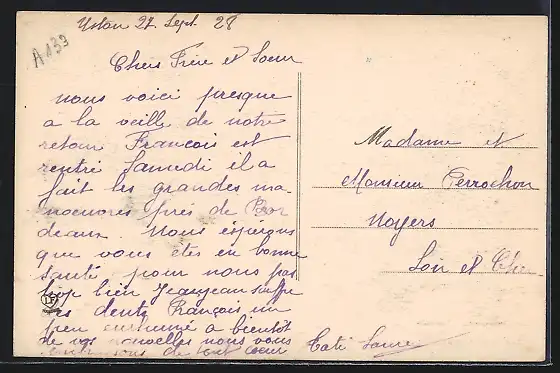 27 Sept 28
A133
Chers Frère et Soeur
nous voici presque
a la veille de notre
retour François est
rentré Samedi il a
fait les grandes ma
noeuvres près de Bor
deaux nous espérons
que vous êtes en bonne
santé pour nous pas
trop bien Jeanjean souffre
des dents François un
peu enrhumé a bientôt
de vos nouvelles nous vous
de tout coeur
Madame et
Monsieur Perrochon
Noyers
Loir et Cher